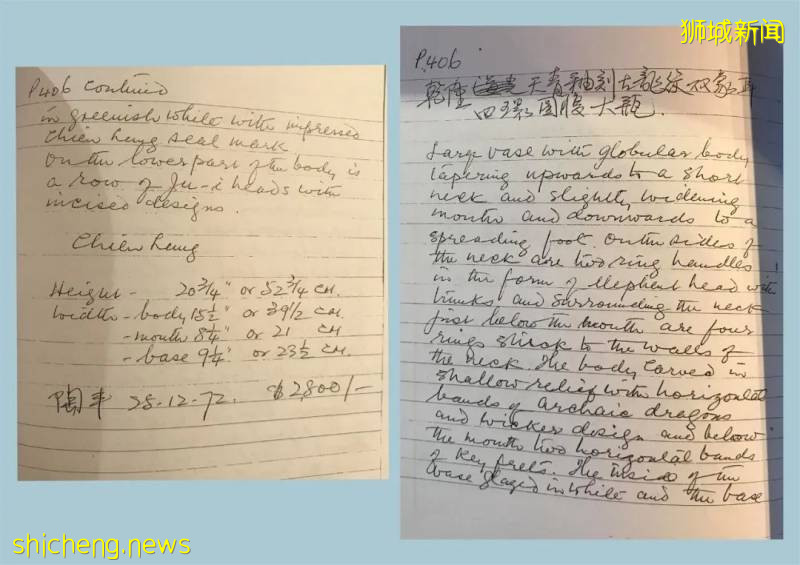 狮城新闻
P406 continued
in greenish white with impressed
Chien Lung seal mark
On the lower part of the body is
a row of Ju-i heads with
incised designs.
Chien Lung
Height - 20 3/4" or 52 3/4 CM.
Width - body 15 1/2" or 39 1/2 CM.
- mouth 8 1/4" or 21 CM
- base 9 1/4" or 23 1/2 CM.
28-12-72. $2,800/-
P.406
乾隆 天青釉刻古龍紋双象耳
四環圓腹大瓶.
Large vase with globular body
tapering upwards to a short
neck and slightly widening
mouth and downwards to a
spreading foot. On the sides of
the neck are two ring handles
in the form of elephant head with
trunks and surrounding the neck
just below the mouth are four
rings stuck to the walls of
the neck. The body carved in
shallow relief with horizontal
bands of archaic dragons
and wicker design and below
the mouth two horizontal bands
of key frets. The inside of the
vase glazed in white and the base
shicheng.news